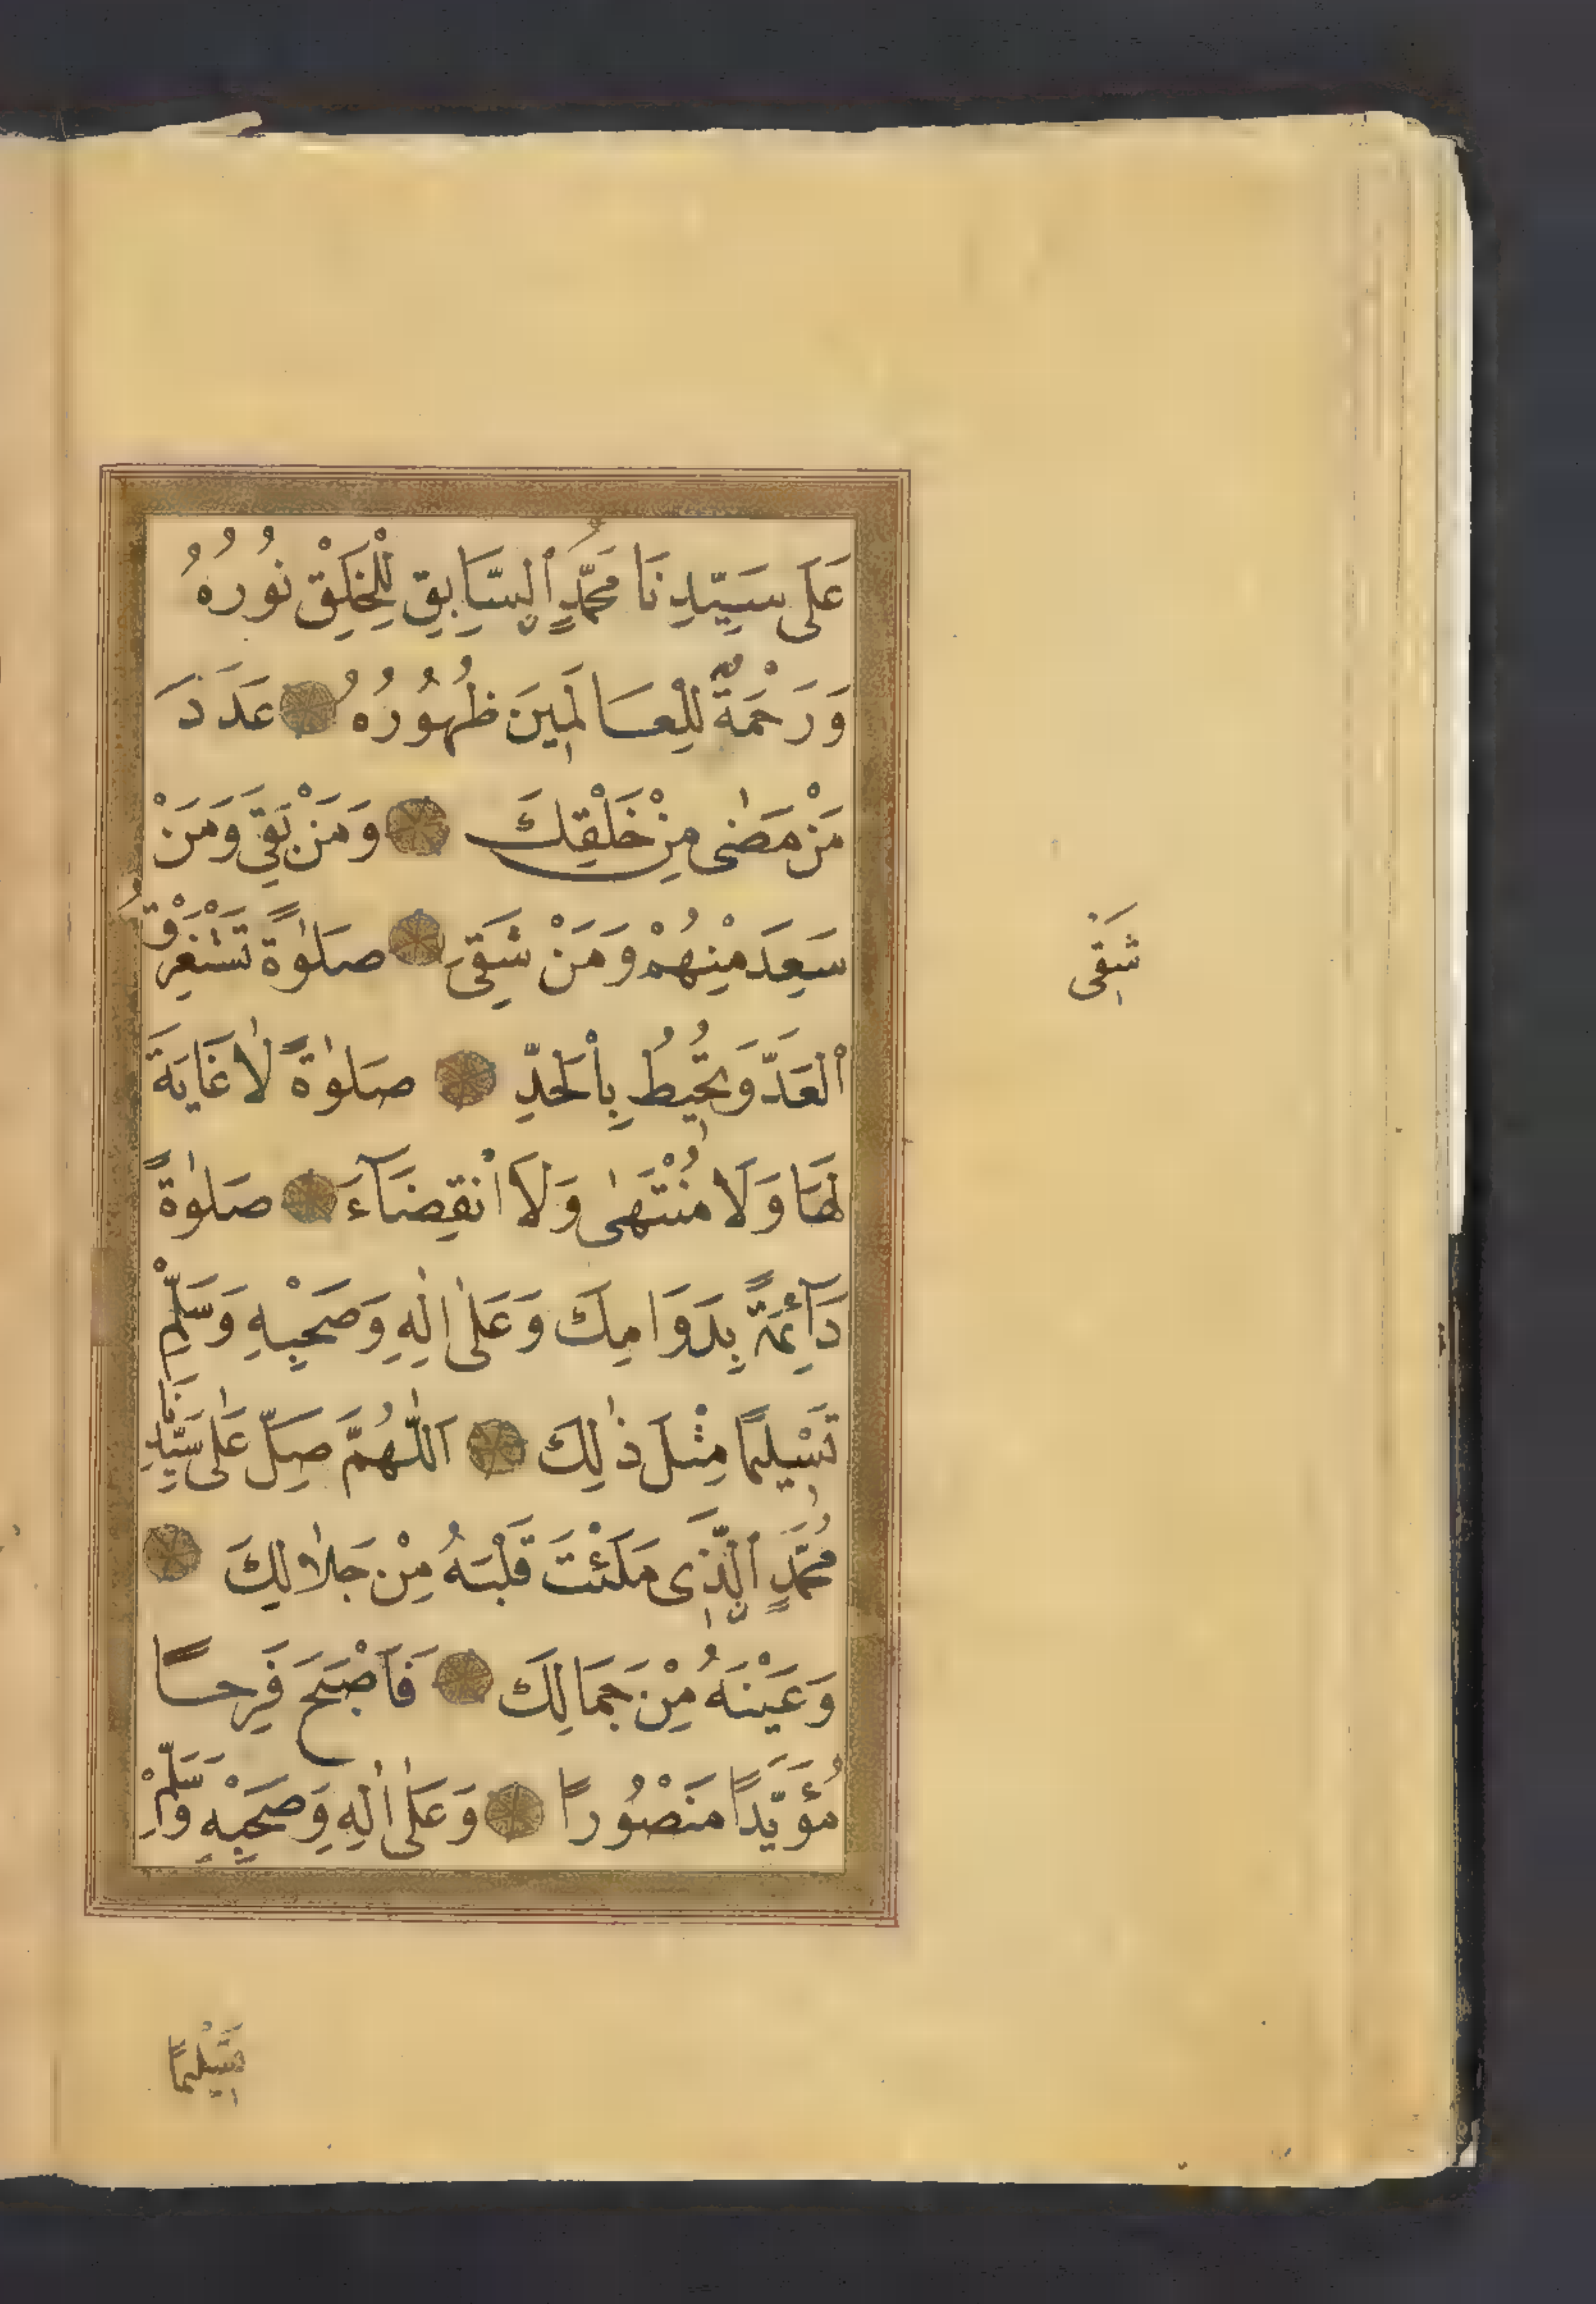 عَلَى سَيِّدِنَا مُحَمَّدٍ ٱلسَّابِقِ لِلْخَلْقِ نُورُهُ
وَرَحْمَةٌ لِلْعَالَمِينَ ظُهُورُهُ عَدَدَ
مَنْ مَضٰى مِنْ خَلْقِكَ وَمَنْ بَقِيَ وَمَنْ
سَعِدَ مِنْهُمْ وَمَنْ شَقِيَ صَلٰوةً تَسْتَغْرِقُ
ٱلْعَدَّ وَتُحِيطُ بِٱلْحَدِّ صَلٰوةً لَا غَايَةَ
لَهَا وَلَا مُنْتَهٰى وَلَا انْقِضَآءَ صَلٰوةً
دَآئِمَةً بِدَوَامِكَ وَعَلٰى اٰلِهِ وَصَحْبِهِ وَسَلِّمْ
تَسْلِيمًا مِثْلَ ذٰلِكَ اَللّٰهُمَّ صَلِّ عَلٰى سَيِّدِنَا
مُحَمَّدٍ ٱلَّذِى مَلَئْتَ قَلْبَهُ مِنْ جَلَالِكَ
وَعَيْنَهُ مِنْ جَمَالِكَ فَاَصْبَحَ فَرِحًا
مُؤَيَّدًا مَنْصُورًا وَعَلٰى اٰلِهِ وَصَحْبِهِ وَسَلِّمْ
شَقِى
تَسْلِيمًا